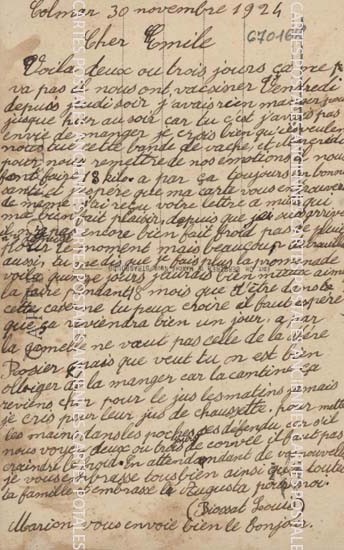 Colmar 30 novembre 1924
Cher Emile
Voila deux ou trois jours ça ne
va pas il nous ont vacsiner Vendredi
depuis jeudi soir j'avais rien manger jour
jusque hier au soir car tu c'est j'avais pas
envie de manger je crois bien qu'ils veulent
nous tue cette bande de vache, et Mercredi
pour nous remettre de nos émotions il nous
font faire 18 kilo. a par ça toujours bonne
santé et j'espère que ma carte vous en trouvera
de même. J'ai reçu votre lettre a midi qui
ma bien fait plaisir, depuis que je suis arrivé
il n'a pas encore bien fait froid pas de pluie
pour le moment mais beaucoup de brouillard
aussi, tu me dis que je fais plus la promenade
voila quinze jours pourtant bien mieux aimé
la faire pendant 18 mois que d'être dans
cette caserne tu peux croire il faut espéré
que ça reviendra bien un jour, a par
la gamelle ne vaut pas celle de la mère
Rosier mais que veut tu on est bien
obliger de la manger car la cantine ça
reviens cher pour le jus les matins jamais
je cris pour leur jus de chaussette, pour mettre
les mains dans les poches ces défendu car s'il
nous voye deux ou trois jours de corvée il faut pas
craindre le froid. En attendant de vos nouvelles
je vous embrasse tous bien ainsi que toute
la famille embrasse la Augusta pour moi.
Biossat Louis
Marion vous envoie bien le Bonjour.
CARTES POSTALES